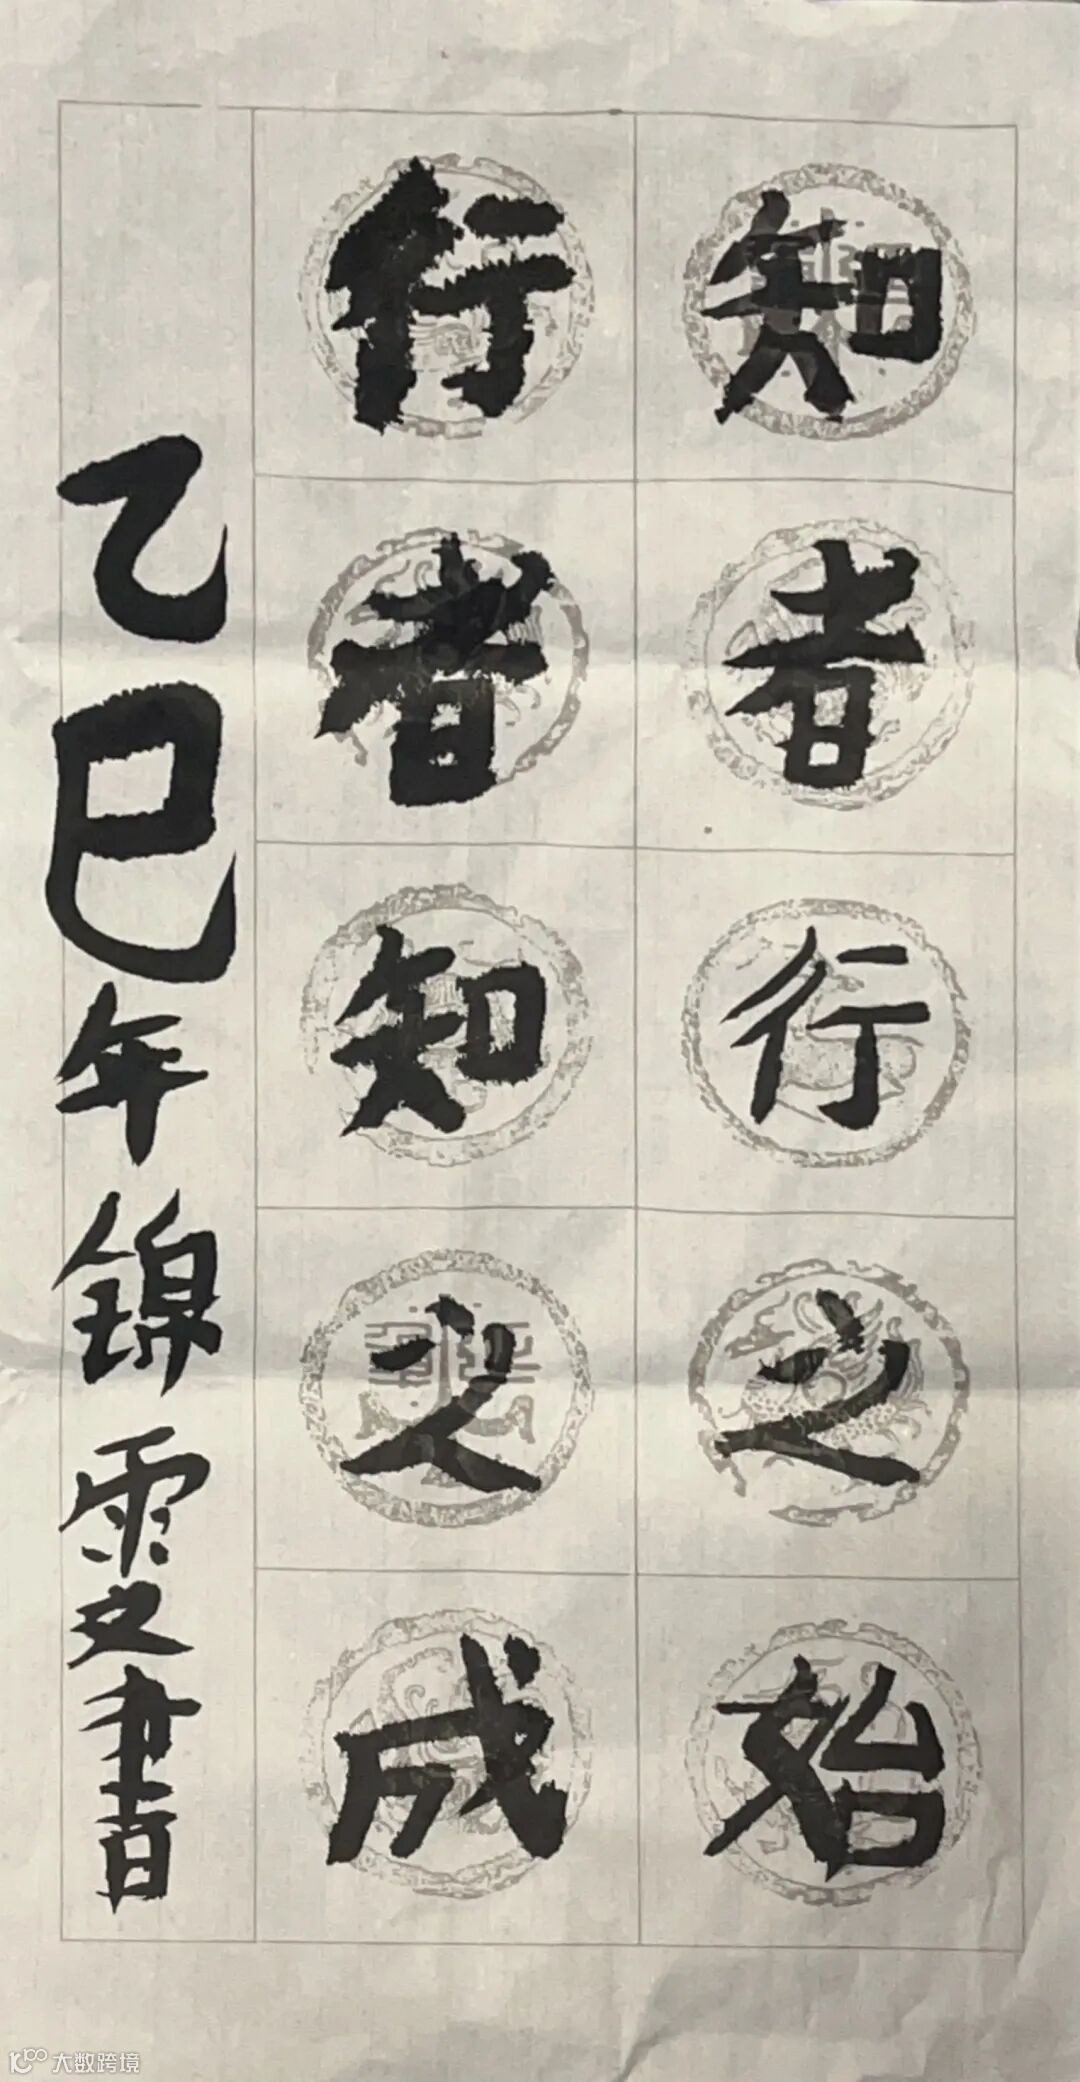 知者行之始
行者知之成
乙巳年锦雯書
大数跨境